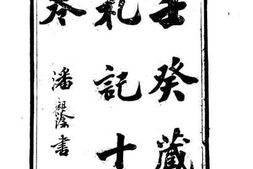 壬癸藏
札記十
卷
潘祖蔭書